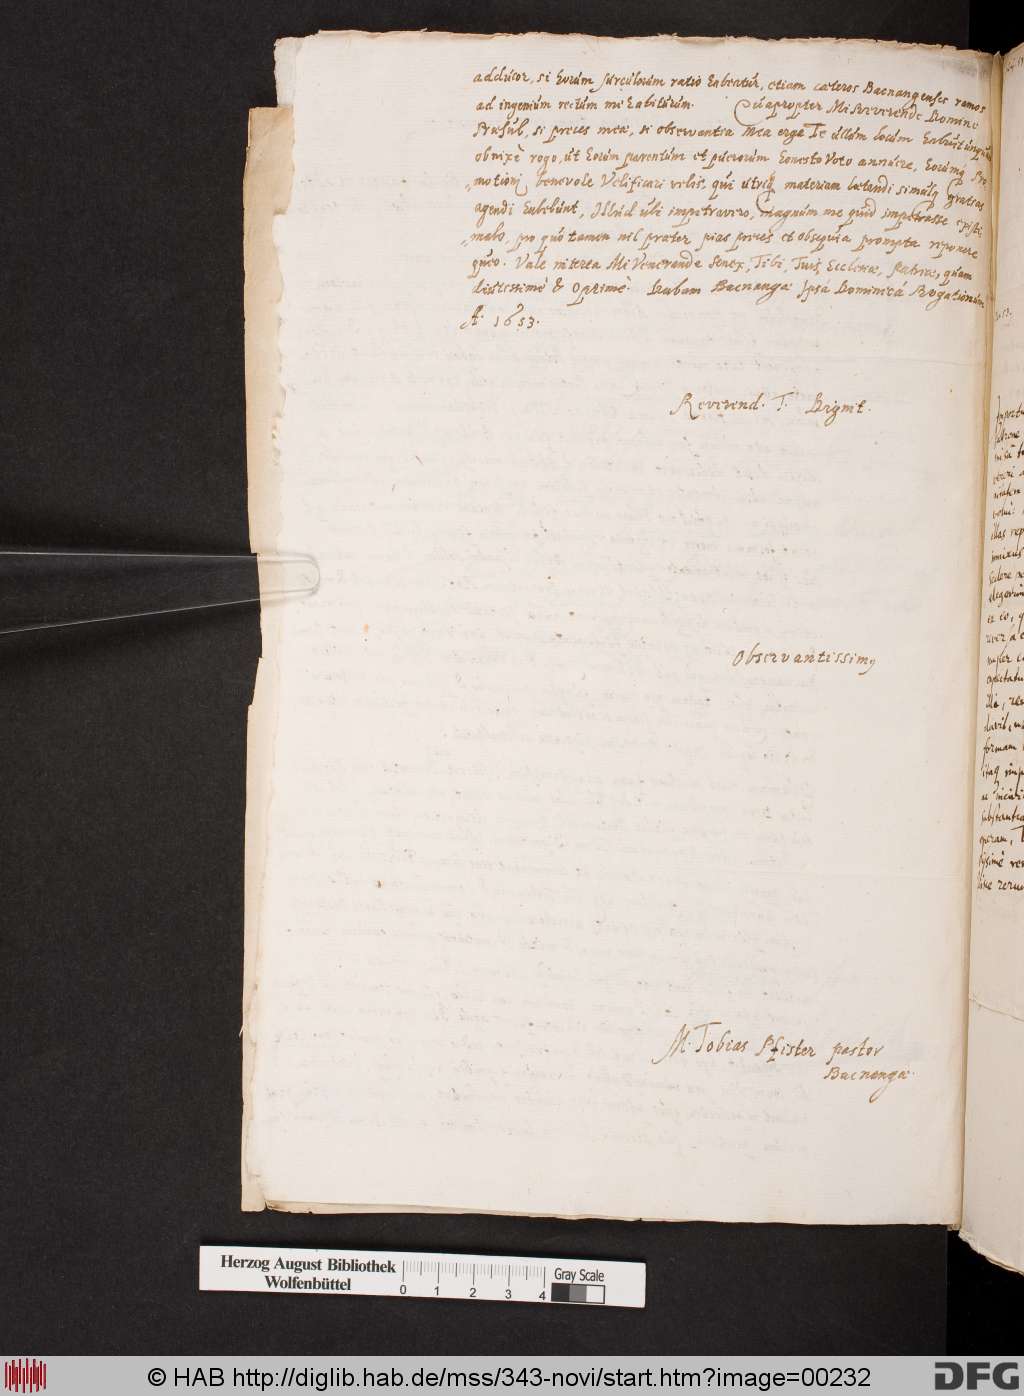 adducor, si horum surculorum ratio habeatur, etiam cæteros Bacnangenses ramos
ad ingenium rectum me habiturum. Quapropter Mi Reverende Domine
Præsul, si preces meæ, si observantia mea erga Te ullum locum habuit unquam
obnixè rogo, ut horum parentum et puerorum honesto voto annuere, horumq; Pro-
motioni benevole velificari velis, qui utriq; materiam lætandi simulq; gratias
agendi habebunt, Illud ubi impetravero, magnum me quid impetrasse existi-
mabo, pro quo tamen nil præter pias preces et obsequia prompta reponere
queo. Vale interea Mi Venerande Senex, Tibi, Tuis, Ecclesiæ, Patriæ, quam
diutissimè & Optime. Dabam Bacnangæ Ipsâ Dominicâ Rogationum
A. 1653.
Reverend. T. Dignit.
Observantissimq
M. Tobias Pfister pastor
Bacnangæ.
illas rep
formam
itaq imp
substantia
operam, T
Herzog August Bibliothek
Wolfenbüttel
0 1 2 3 4
Gray Scale
© HAB http://diglib.hab.de/mss/343-novi/start.htm?image=00232
DFG